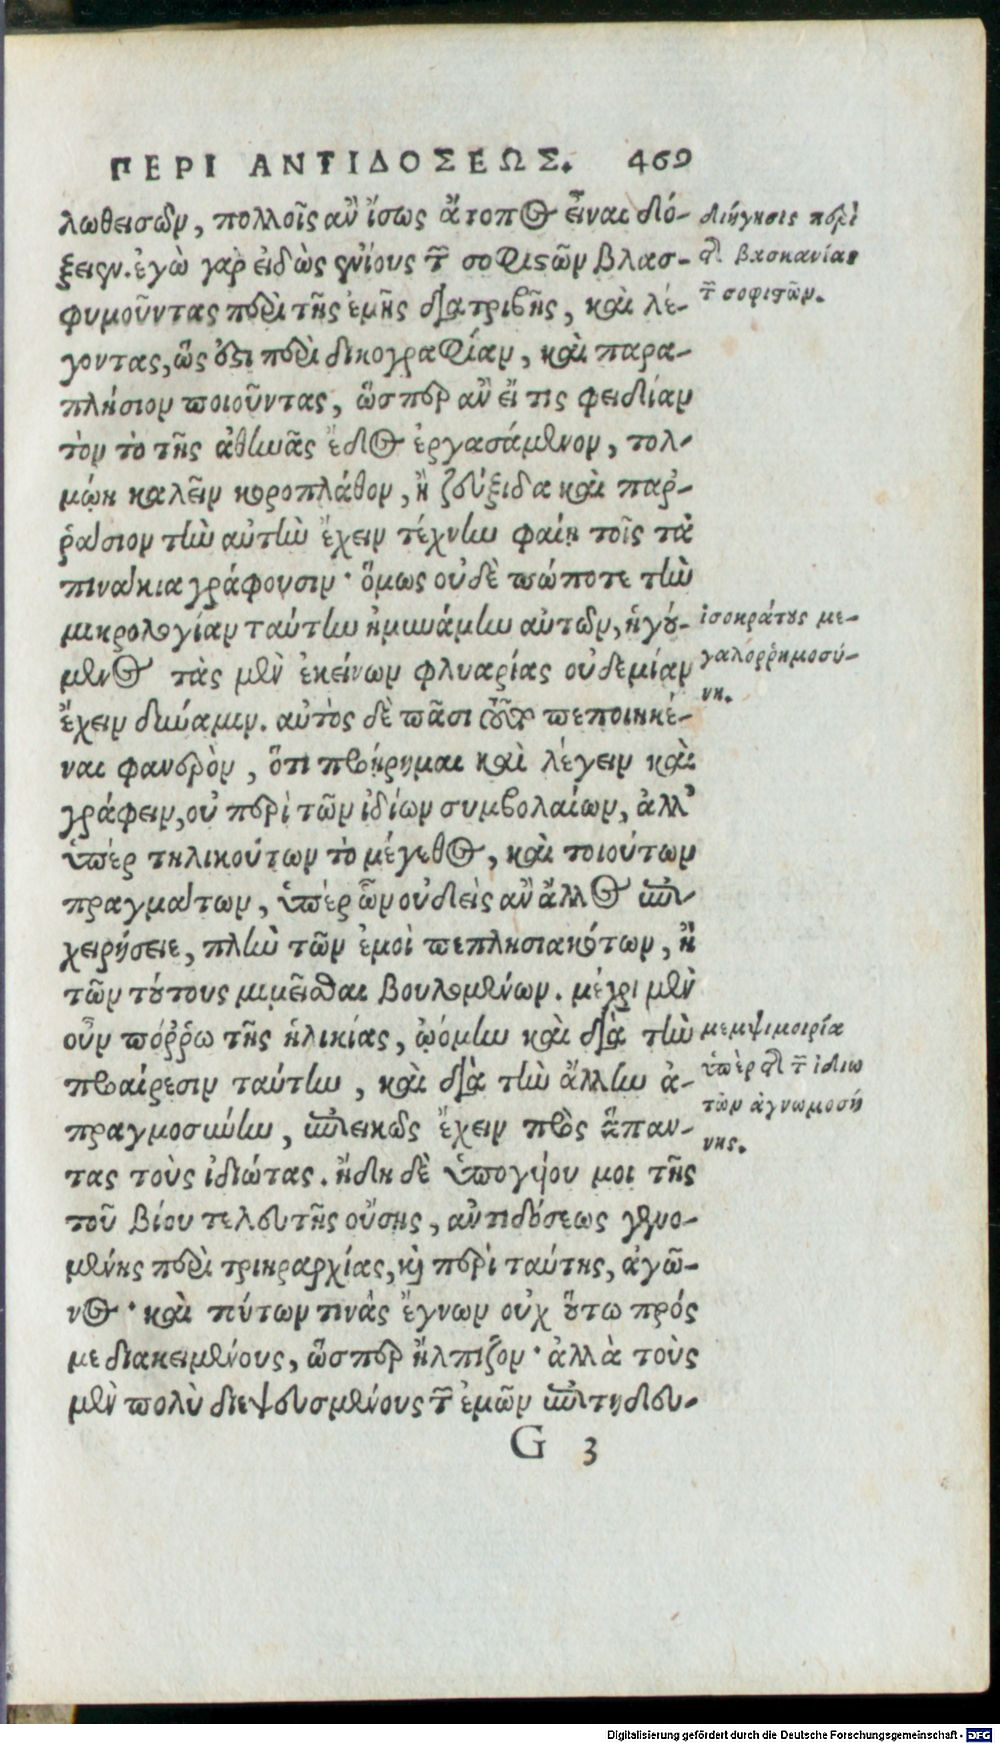 ΠΕΡΙ ΑΝΤΙΔΟΣΕΩΣ. 469
λωθεισῶν, πολλοῖς ἂν ἴσως ἄτοπος εἶναι δό-
ξειεν. ἐγὼ γὰρ εἰδὼς ἐνίους τῶν σοφιστῶν βλασ-
φυμοῦντας περὶ τῆς ἐμῆς διατριβῆς, καὶ λέ-
γοντας, ὥς ἐστι περὶ δικογραφίαν, καὶ παρα-
πλήσιον ποιοῦντας, ὥσπερ ἂν εἴ τις φειδίαν
τὸν τὸ τῆς ἀθηνᾶς ἕδος ἐργασάμενον, τολ-
μῴη καλεῖν κοροπλάθον, ἢ ζεύξιδα καὶ παρ-
ῥάσιον τὴν αὐτὴν ἔχειν τέχνην φαίη τοῖς τὰ
πινάκια γράφουσιν· ὅμως οὐδὲ πώποτε τὴν
μικρολογίαν ταύτην ἠμυνάμην αὐτῶν, ἡγού-
μενος τὰς μὲν ἐκείνων φλυαρίας οὐδεμίαν
ἔχειν δύναμιν. αὐτὸς δὲ πᾶσι τοῦτο πεποιηκέ-
ναι φανερὸν, ὅτι προῄρημαι καὶ λέγειν καὶ
γράφειν, οὐ περὶ τῶν ἰδίων συμβολαίων, ἀλλ'
ὑπὲρ τηλικούτων τὸ μέγεθος, καὶ τοιούτων
πραγμάτων, ὑπὲρ ὧν οὐδεὶς ἂν ἄλλος ἐπι-
χειρήσειε, πλὴν τῶν ἐμοὶ πεπλησιακότων, ἢ
τῶν τούτους μιμεῖσθαι βουλομένων. μέχρι μὲν
οὖν πόῤῥω τῆς ἡλικίας, ᾠόμην καὶ διὰ τὴν
προαίρεσιν ταύτην, καὶ διὰ τὴν ἄλλην ἀ-
πραγμοσύνην, ἐπιεικῶς ἔχειν πρὸς ἅπαν-
τας τοὺς ἰδιώτας. ἤδη δὲ ὑπογύου μοι τῆς
τοῦ βίου τελευτῆς οὔσης, ἀντιδόσεως γενο-
μένης περὶ τριηραρχίας, καὶ περὶ ταύτης, ἀγῶ-
νος· καὶ τούτων τινὰς ἔγνων οὐχ οὕτω πρός
με διακειμένους, ὥσπερ ἤλπιζον· ἀλλὰ τοὺς
μὲν πολὺ διεψευσμένους τῶν ἐμῶν ἐπιτηδευ-
G 3
διήγησις περὶ
τῆς βασκανίας
τῶν σοφιστῶν.
ἰσοκράτους με-
γαλοῤῥημοσύ-
νη.
μεμψιμοιρία
ὑπὲρ τῆς τῶν ἰδιω
τῶν ἀγνωμοσύ
νης.
Digitalisierung gefördert durch die Deutsche Forschungsgemeinschaft - DFG